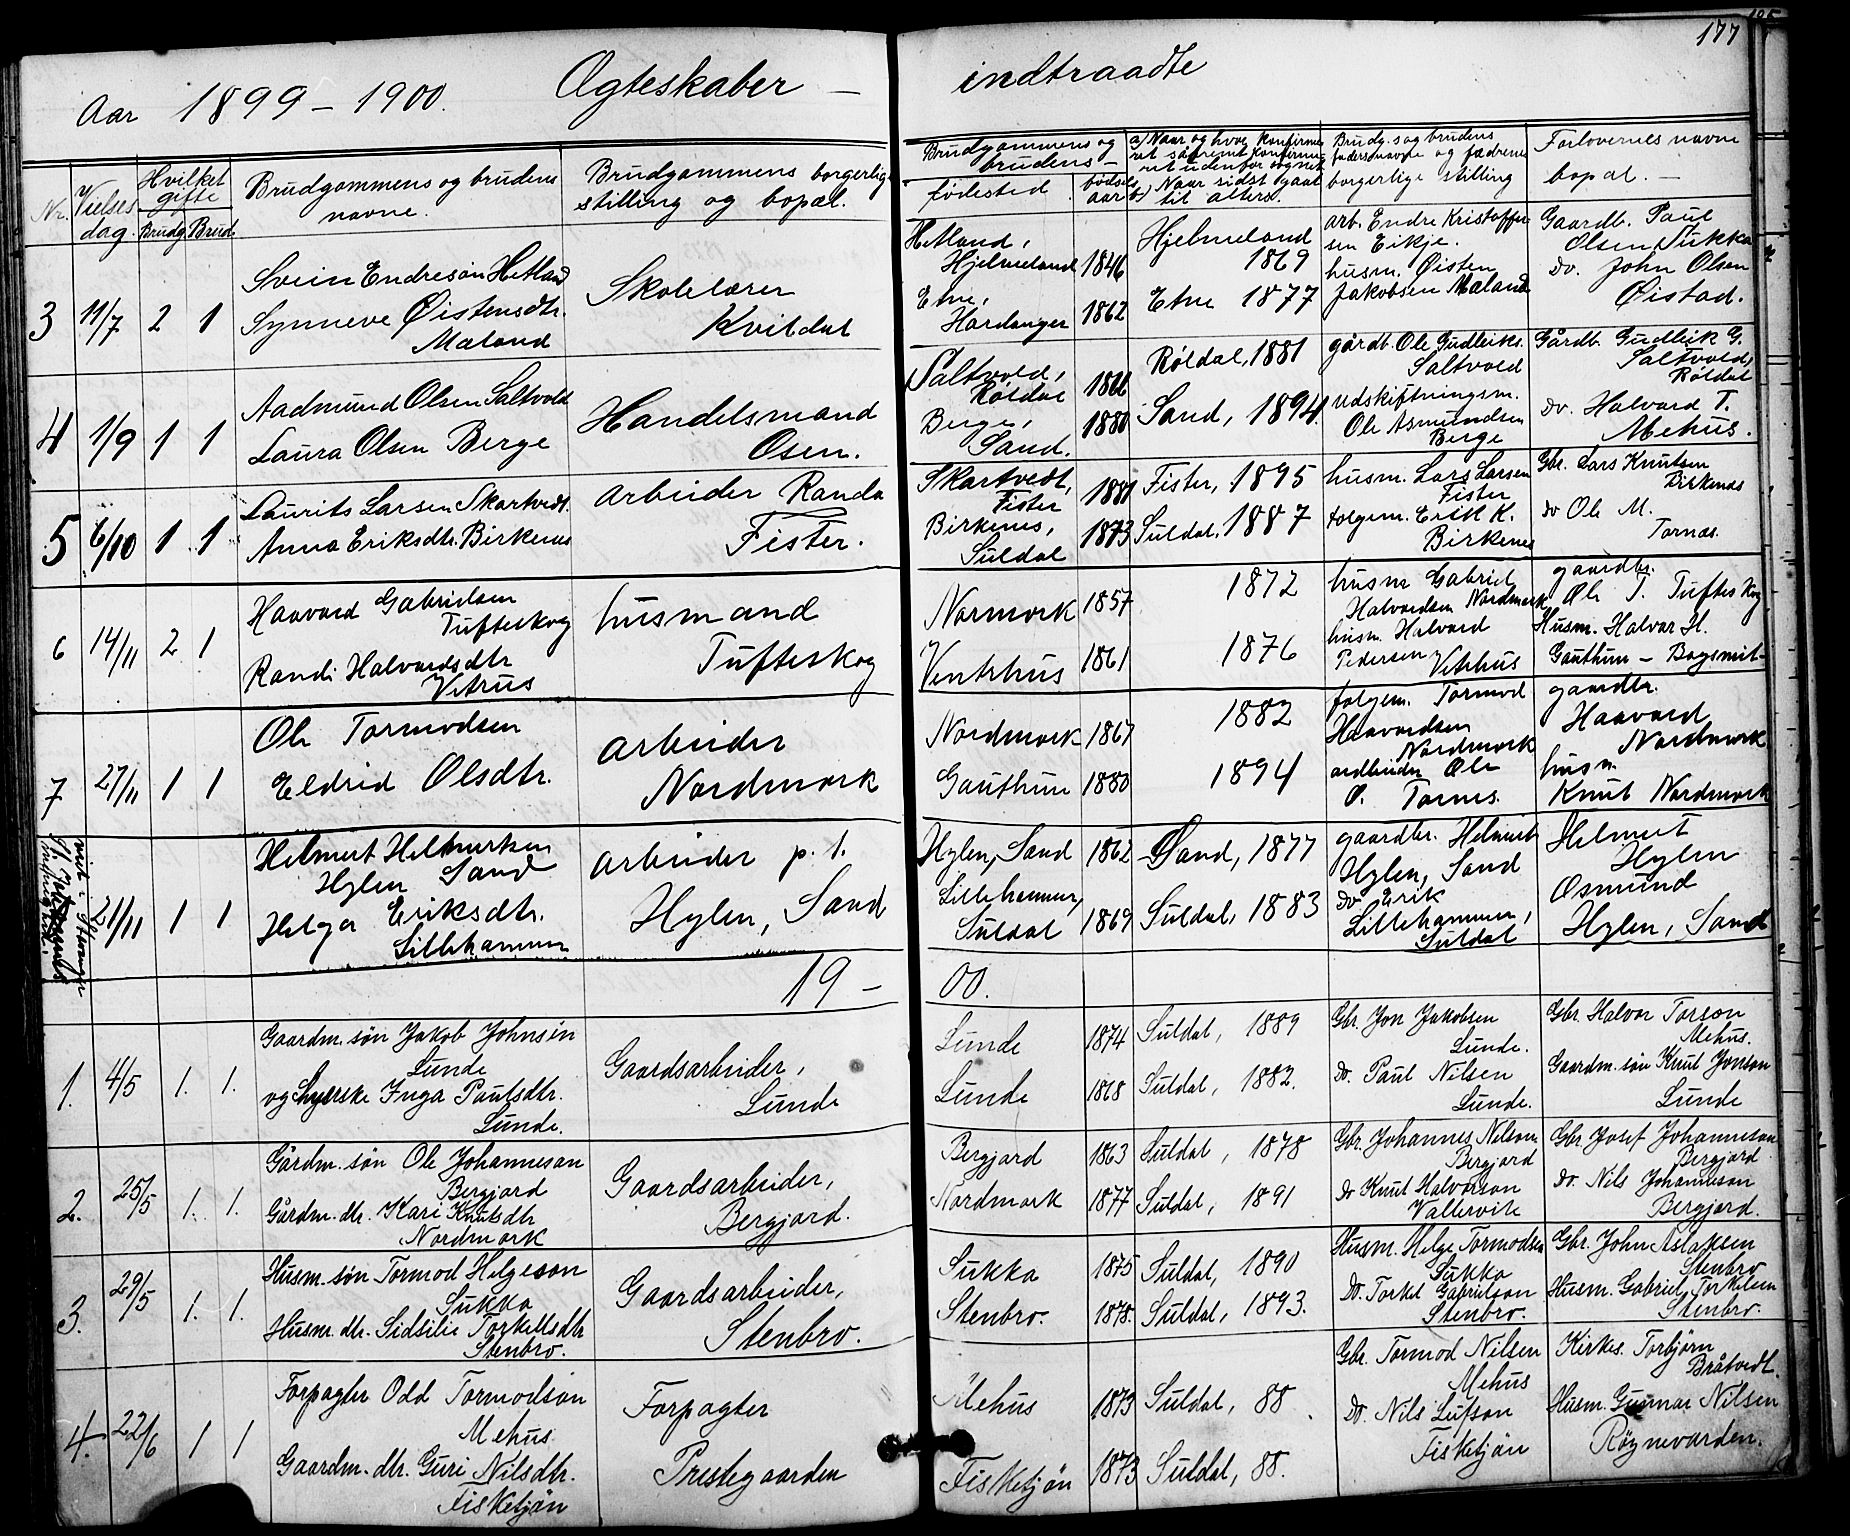 177
Aar 1899 - 1900. Ægteskaber - indtraadte
Nr. Vielses dag. Hvilket gifte Brudg. Brud
Brudgommens og brudens navne.
Brudgommens borgerlige stilling og bopæl.
Brudgommens og brudens - fødested. fødsels aar
a) Naar og hvor konfirmeret såfremt konfirmeret udenfor sognet
b) Naar sidst gaat til alters.
Brudg.s og brudens faders navne og fædrenes borgerlige stilling
Forlovernes navne bopæl. -
3 11/7 2 1
Svein Endresøn Hetland
Synneve Øistensdtr.
Maland
Skolelærer
Kvildal
Hetland,
Hjelmeland 1846
Etne,
Hardanger 1862
Hjelmeland
1869
Etne 1877
arb. Endre Kristoffer
sen Eikje.
husm. Øisten
Jakobsen Maland
Gaardb. Paul
Olsen Sukka
do. John Olsen
Øistad.
4 1/9 1 1
Aadmund Olsen Saltvold
Laura Olsen Berge
Handelsmand
Osen.
Saltvold,
Røldal 1866
Berge,
Sand. 1880
Røldal, 1881
Sand, 1894.
gårdb. Ole Gudleiks.
Saltvold
udskiftningsm.
Ole Asmundsen
Berge
Gårdb. Gudleik G.
Saltvold,
Røldal
do. Halvard T.
Mehus.
5 6/10 1 1
Laurits Larsen Skartvedt.
Anna Eriksdtr. Birkenes
arbeider Randa
Fister.
Skartvedt,
Fister 1881
Birkenes,
Suldal 1873
Fister, 1895
Suldal, 1887
husm. Lars Larsen
Fister
folgem. Erik K.
Birkenes
Gbr. Lars Knutsen
Birkenes
do Ole M.
Tornes.
6 14/11 2 1
Haavard Gabrielsen
Tufteskog
Randi Halvardsdtr
Vetrus
husmand
Tufteskog
Normork 1857
Ventrhus 1861
1872
1876
husm Gabriel
Halvardsen Nordmork
husm. Halvard
Pedersen Vetrhus
gaardbr.
Ole T. Tufteskog
Husm. Halvar H.
Gauthun -
7 27/11 1 1
Ole Tormodsen
Eldrid Olsdtr.
arbeider
Nordmork
Nordmork 1867
Gauthun 1880
1882
1894
folgem. Tormod
Haavardsen
Nordmork
Ole
O. Tornes.
gaardbr.
Haavard
Nordmork
husm.
Knut Nordmork
21/11 1 1
Helmert Helmerksen
Hylen Sand
Helga Eriksdtr.
Lillehammer
arbeider p. t.
Hylen, Sand
Hylen, Sand 1862
Lillehammer,
Suldal 1869
Sand, 1877
Suldal, 1883
gaardbr. Helmert
Hylen, Sand
do Erik
Lillehammer,
Suldal
Helmert
Hylen
Osmund
Hylen, Sand
19 - 00.
1. 4/5 1. 1.
Gaardm. søn Jakob Johnsøn
Lunde
og Syerske Inga Paulsdtr.
Lunde.
Gaardsarbeider,
Lunde
Lunde 1874
Lunde 1868
Suldal, 1889
Suldal, 1882.
Gbr. Jon Jakobsen
Lunde.
do. Paul Nilsen
Lunde.
Gbr. Halvor Torson
Mehus.
Gaardm. søn Knut Jonson
Lunde
2. 25/5 1. 1.
Gårdm. søn Ole Johanneson
Bergjord
Gårdm. dtr. Kari Knutsdtr
Nordmork
Gaardsarbeider,
Bergjord.
Bergjord 1863
Nordmork 1877
Suldal, 1878
Suldal, 1891
Gbr. Johannes Nilson
Bergjord
do Knut Halvorson
Vallervik
Gbr Josef Johanneson
Bergjord
do. Nils Johanneson
Bergjord.
3. 29/5 1. 1.
Husm. søn Tormod Helgeson
Sukka
Husm. dtr. Sidsilie Torkelsdtr
Stenbro.
Gaardsarbeider,
Stenbro.
Sukka 1875
Stenbro. 1878.
Suldal, 1890
Suldal, 1893.
Husm. Helge Tormodsen
Sukka
Do. Torkel Gabrielson
Stenbro.
Gbr. John Aslaksen
Stenbro
Husm. Gabriel Torkelsen
Stenbro.
4. 22/6 1 1
Forpagter Odd Tormodson
Mehus.
Gaardm. dtr. Guri Nilsdtr.
Fisketjön
Forpagter
Prestegaarden
Mehus 1873
Fisketjön 1873
Suldal, 88.
Suldal, 88.
Gbr. Tormod Nilsen
Mehus
Do. Nils Lufson
Fisketjön
Kirkes. Torbjørn
Bråtvedt.
Husm. Gunnar Nilsen
Røgnevarden.